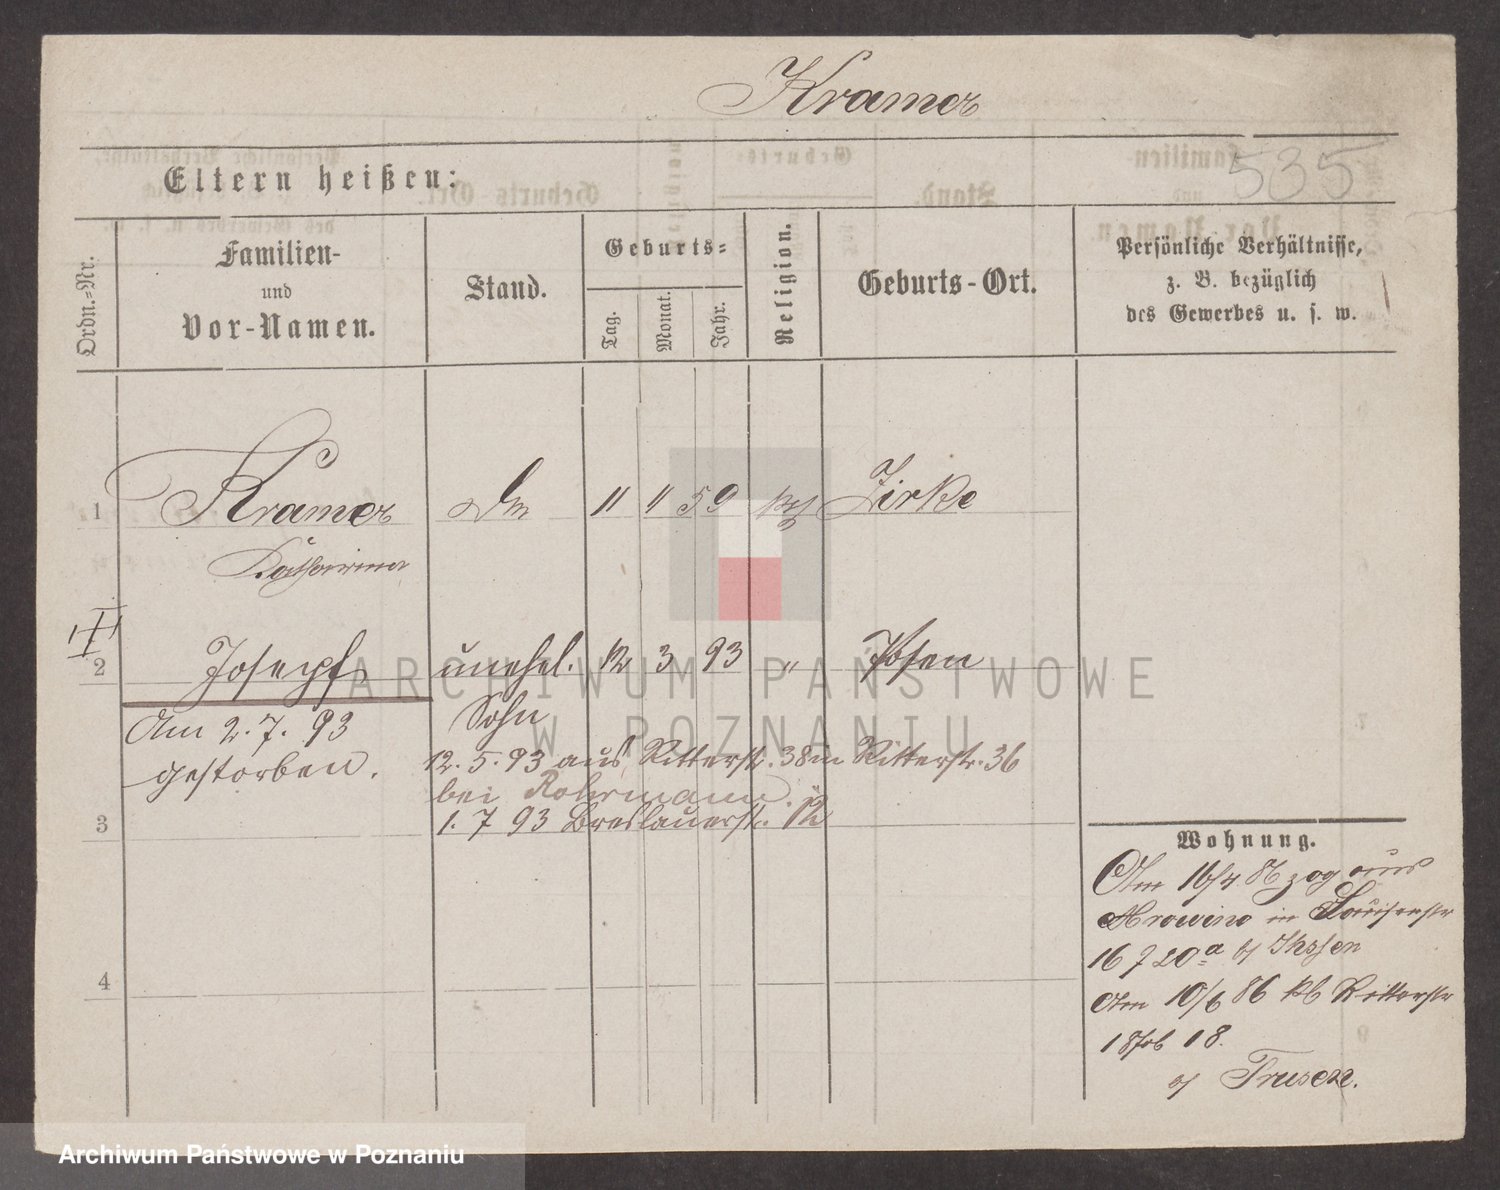 Kramer
535
Eltern heißen:
Ordn.=Nr.
Familien-
und
Vor-Namen.
Stand.
Geburts=
Tag.
Monat.
Jahr.
Religion.
Geburts-Ort.
Persönliche Verhältnisse,
z. B. bezüglich
des Gewerbes u. s. w.
1 Kramer 11 11 59 kath Zirke
Katharina
2 Joseph unehel. 12 3 93 " Posen
Sohn
Am 2. 7. 93
gestorben.
12. 5. 93 aus Ritterstr. 38 in Ritterstr. 36
bei Rohrmann.
1. 7 93 Breslauerstr.
3
4
Wohnung.
Am 16/4 86 zog aus
Mrowino in Louisenstr
16 20a
Am 10/6 86 Ritterstr
18
Trusen.
ARCHIWUM PAŃSTWOWE
W POZNANIU
Archiwum Państwowe w Poznaniu